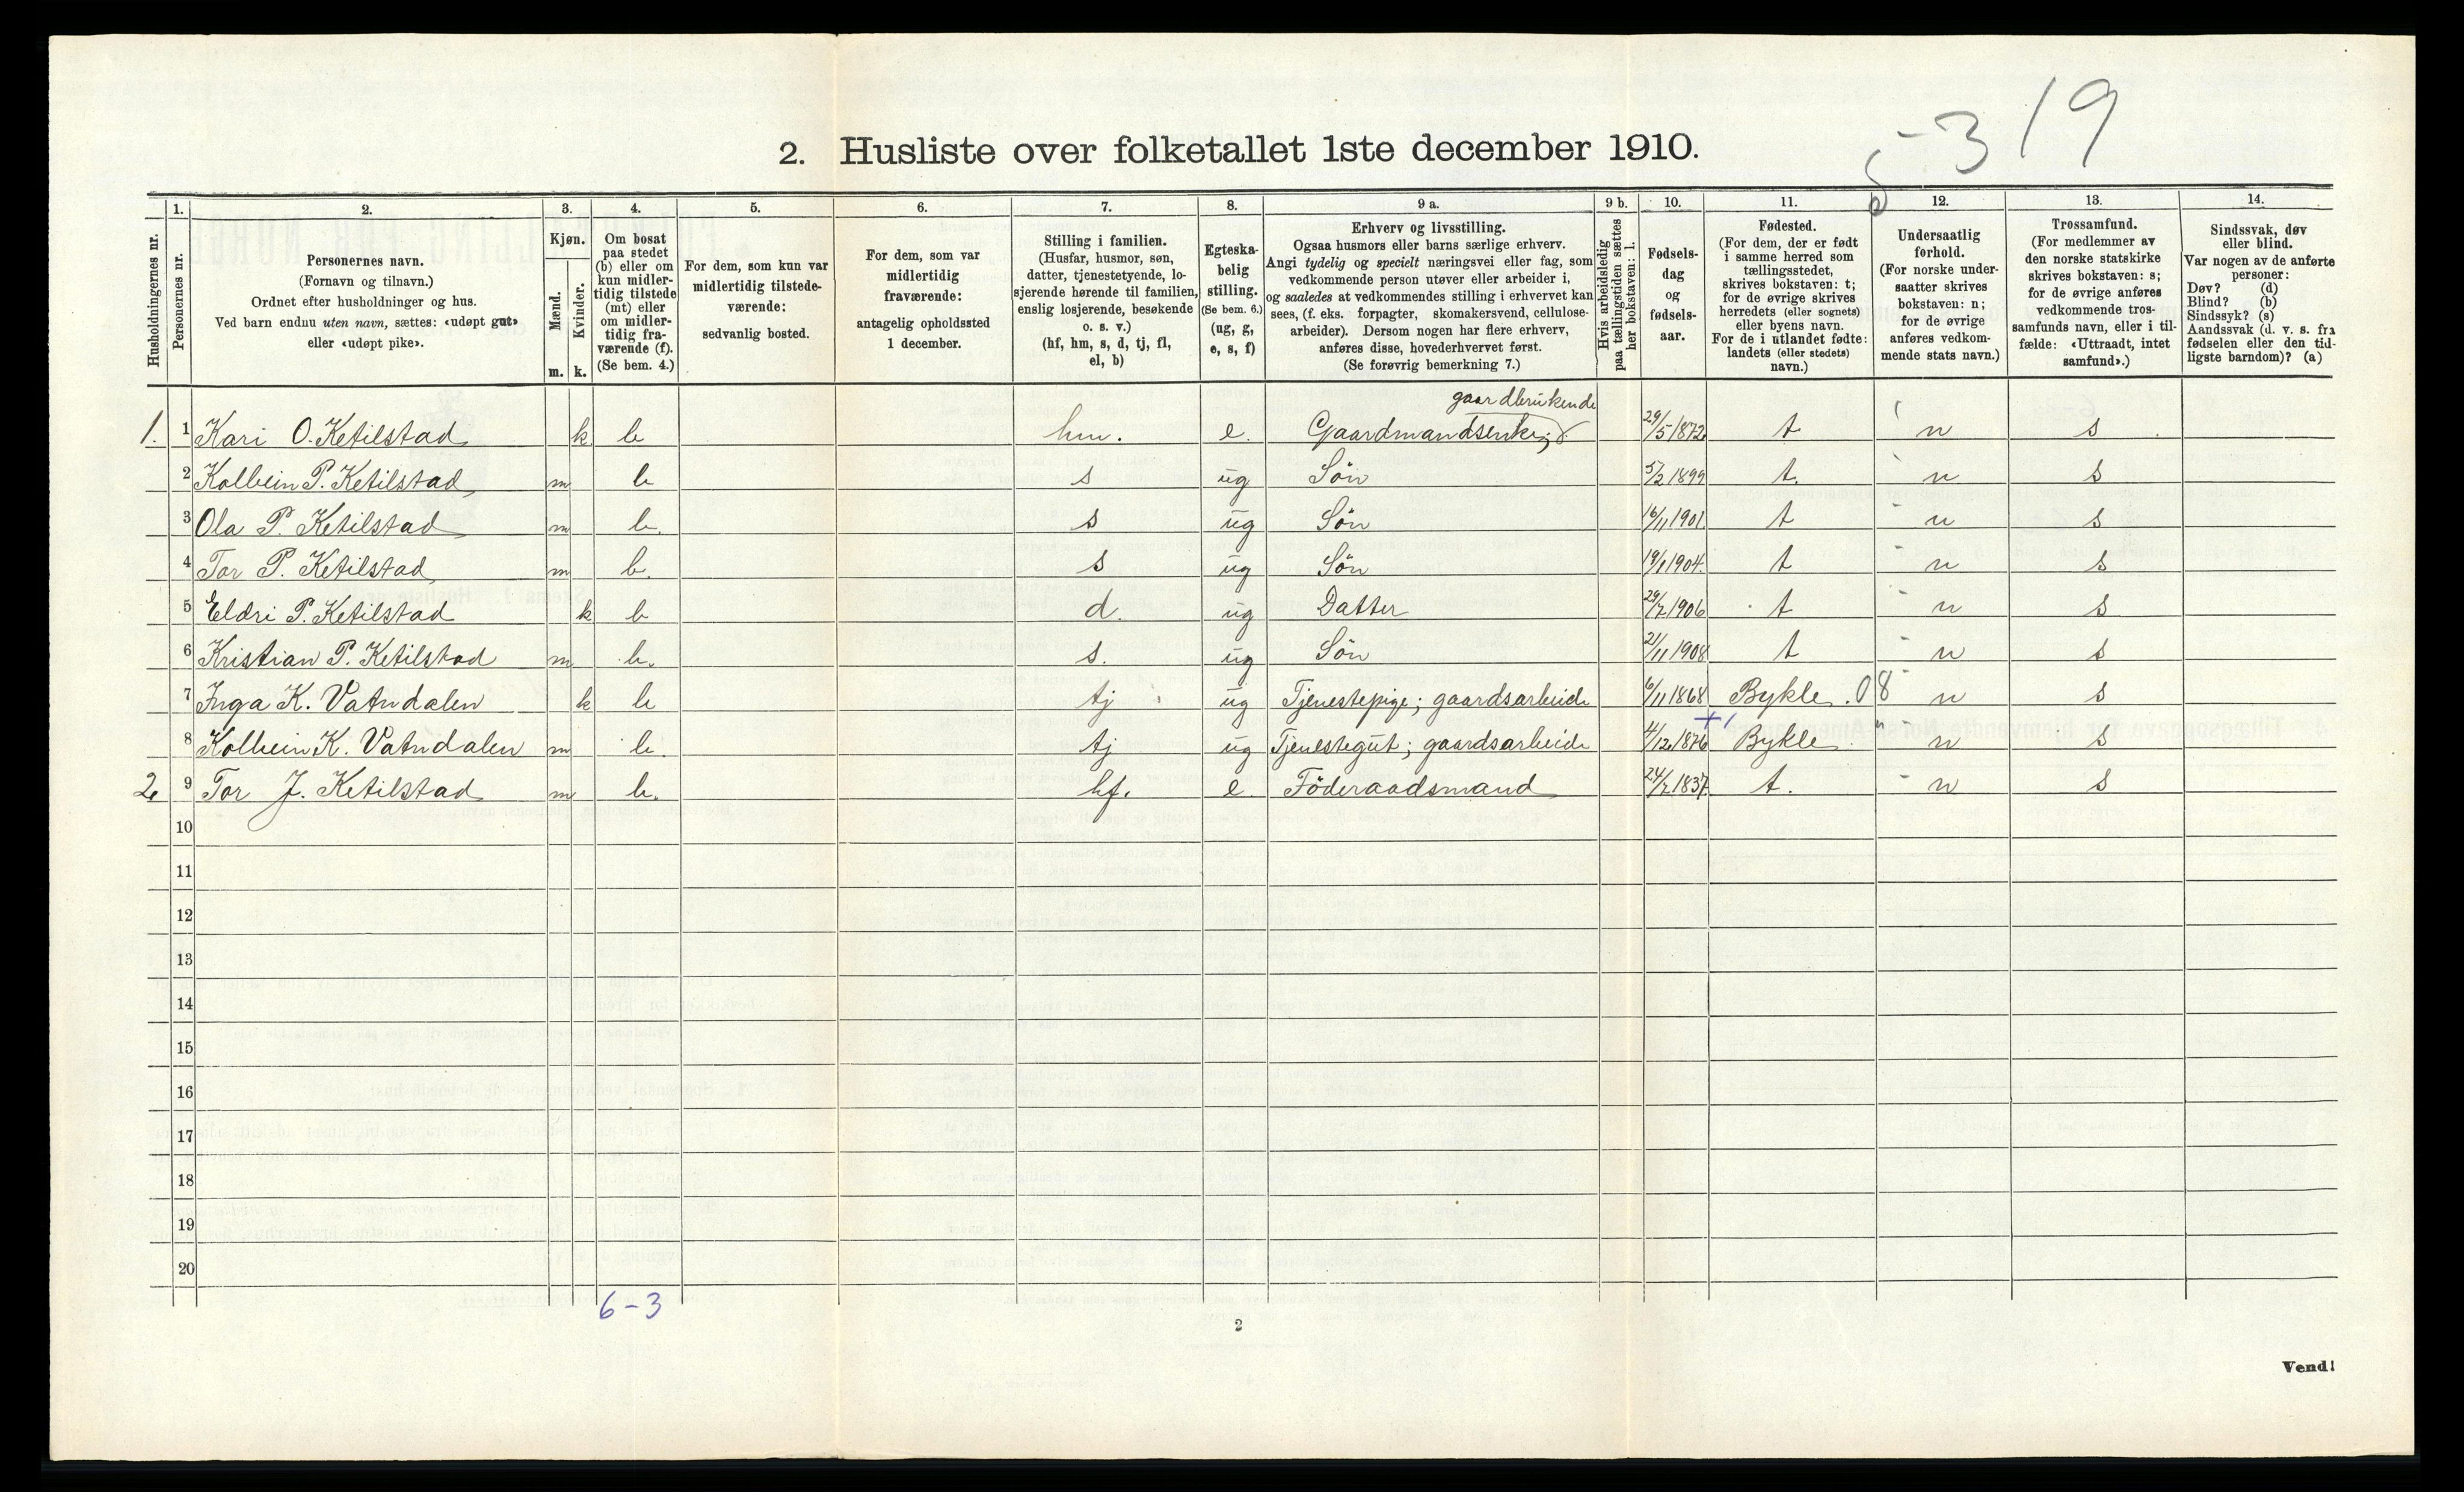 5-3 19
2. Husliste over folketallet 1ste december 1910.
Husholdningernes nr.
1.
Personernes nr.
2.
Personernes navn.
(Fornavn og tilnavn.)
Ordnet efter husholdninger og hus.
Ved barn endnu uten navn, sættes: «udøpt gut»
eller «udøpt pike».
3.
Kjøn.
Mænd.
Kvinder.
m. k.
4.
Om bosat
paa stedet
(b) eller om
kun midler-
tidig tilstede
(mt) eller
om midler-
tidig fra-
værende (f).
(Se bem. 4.)
5.
For dem, som kun var
midlertidig tilstede-
værende:
sedvanlig bosted.
6.
For dem, som var
midlertidig
fraværende:
antagelig opholdssted
1 december.
7.
Stilling i familien.
(Husfar, husmor, søn,
datter, tjenestetyende, lo-
sjerende hørende til familien,
enslig losjerende, besøkende
o. s. v.)
(hf, hm, s, d, tj, fl,
el, b)
8.
Egteska-
belig
stilling.
(Se bem. 6.)
(ug, g,
e, s, f)
9 a.
Erhverv og livsstilling.
Ogsaa husmors eller barns særlige erhverv.
Angi tydelig og specielt næringsvei eller fag, som
vedkommende person utøver eller arbeider i,
og saaledes at vedkommendes stilling i erhvervet kan
sees, (f. eks. forpagter, skomakersvend, cellulose-
arbeider). Dersom nogen har flere erhverv,
anføres disse, hovederhvervet først.
(Se forøvrig bemerkning 7.)
9 b.
Hvis arbeidsledig
paa tællingstiden sættes
her bokstaven: l.
10.
Fødsels-
dag
og
fødsels-
aar.
11.
Fødested.
(For dem, der er født
i samme herred som
tællingsstedet,
skrives bokstaven: t;
for de øvrige skrives
herredets (eller sognets)
eller byens navn.
For de i utlandet fødte:
landets (eller stedets)
navn.)
12.
Undersaatlig
forhold.
(For norske under-
saatter skrives
bokstaven: n;
for de øvrige
anføres vedkom-
mende stats navn.)
13.
Trossamfund.
(For medlemmer av
den norske statskirke
skrives bokstaven: s;
for de øvrige anføres
vedkommende tros-
samfunds navn, eller i til-
fælde: «Uttraadt, intet
samfund».)
14.
Sindssvak, døv
eller blind.
Var nogen av de anførte
personer:
Døv? (d)
Blind? (b)
Sindssyk? (s)
Aandssvak (d. v. s. fra
fødselen eller den tid-
ligste barndom)? (a)
gaardbrukende
1. 1 Kari O. Ketilstad k b hm. e. Gaardmandsenke; 29/5 1872 t n s
2 Kolbein P. Ketilstad m b s ug Sön 5/2 1899 t. n s
3 Ola P. Ketilstad m b. s ug Sön 16/11 1901. t n s
4 Tor P. Ketilstad m b. s ug Sön 19/1 1904. t n s
5 Eldri P. Ketilstad k b d. ug Datter 29/7 1906 t n s
6 Kristian P. Ketilstad m b. s. ug Sön 21/11 1908 t n s
7 Inga K. Vatndalen k b tj ug Tjenestepige; gaardsarbeide 6/11 1868 Bykle. 08 n s
8 Kolbein K. Vatndalen m b. tj ug Tjenestegut; gaardsarbeide 4/12 1876 Bykle " n s
2. 9 Tor J. Ketilstad m b. hf. e Föderaadsmand 24/7 1837. t. n s
10
11
12
13
14
15
16
17
18
19
20
6-3
2
Vend!